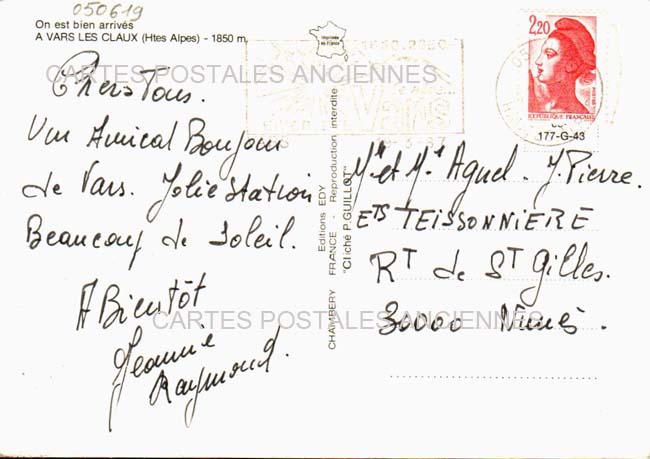 050619
On est bien arrivés
A VARS LES CLAUX (Htes Alpes) - 1850 m
Imprimée en France
CARTES POSTALES ANCIENNES
Chers Tous.
Un Amical Bonjour
de Vars. Jolie Station
Beaucoup de Soleil.
A Bientôt
Jeannie
Raymond.
CARTES POSTALES ANCIENNES
Editions EDY
CHAMBERY - FRANCE - Reproduction interdite
"Cliché P. GUILLOT"
1650-2250
Vars
2,20
REPUBLIQUE FRANÇAISE
177-G-43
Mr et Me Agnel. J. Pierre.
Ets TEISSONNIERE
RT de ST Gilles.
30000 Nimes.